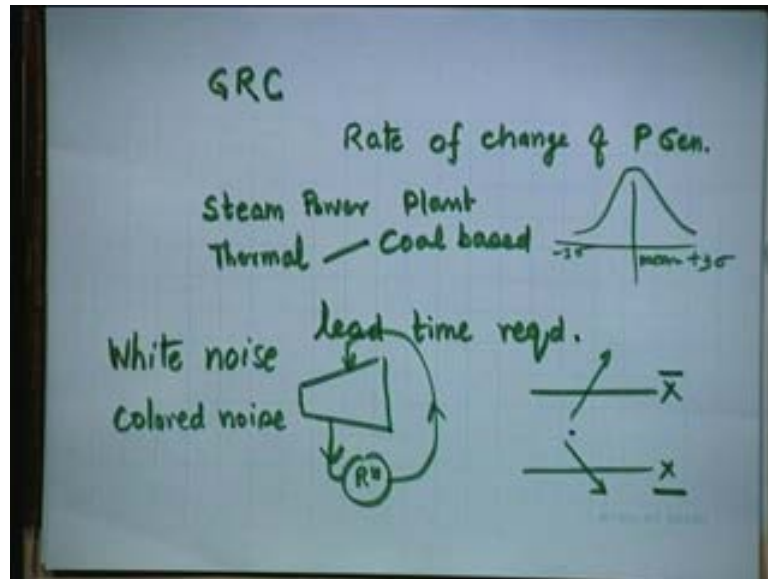 GRC
Rate of change of P Gen.
Steam Power Plant
Thermal — Coal based
-3σ mean +3σ
lead time reqd.
White noise
Colored noise
X̅
X̲